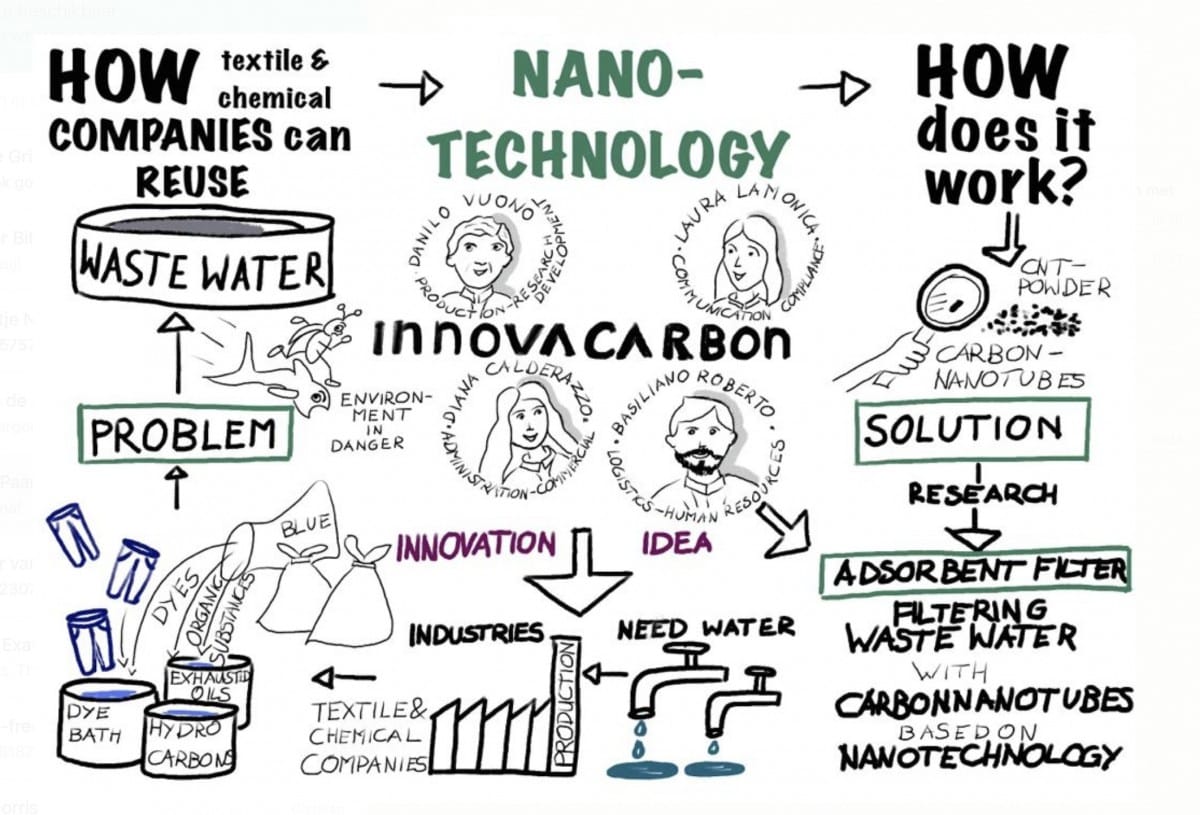 HOW textile &
chemical
COMPANIES can
REUSE
WASTE WATER
PROBLEM
ENVIRON-
MENT
IN
DANGER
BLUE
DYES
ORGANIC
SUBSTANCES
EXHAUSTED
OILS
DYE
BATH
HYDRO
CARBONS
NANO-
TECHNOLOGY
DANILO VUONO
PRODUCTION-RESEARCH
DEVELOPMENT
LAURA LAMONICA
COMMUNICATION COMPLIANCE
INNOVACARBON
DIANA CALDERAZZO
ADMINISTRATION-COMMERCIAL
BASILIANO ROBERTO
LOGISTICS-HUMAN RESOURCES
INNOVATION
IDEA
INDUSTRIES
NEED WATER
PRODUCTION
TEXTILE&
CHEMICAL
COMPANIES
HOW
does it
work?
CNT-
POWDER
CARBON-
NANOTUBES
SOLUTION
RESEARCH
ADSORBENT FILTER
FILTERING
WASTE WATER
WITH
CARBONNANOTUBES
BASED ON
NANOTECHNOLOGY